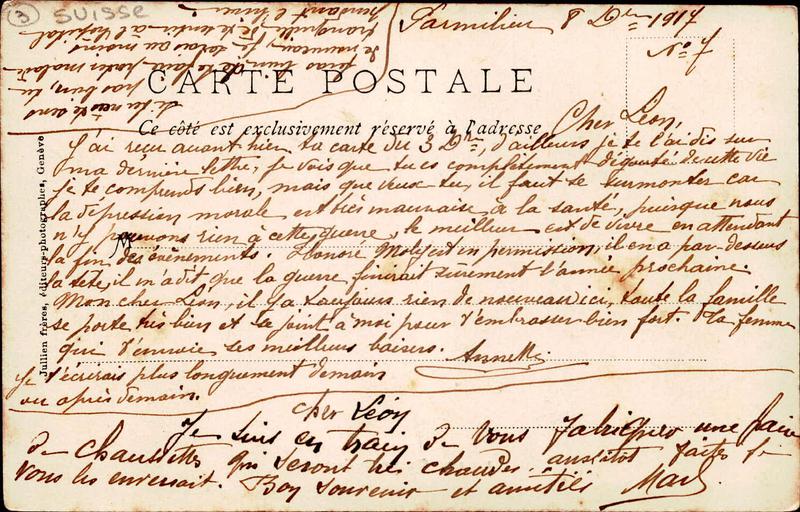 ③ SUISSE
Parmilieu 8 Dbre 1917
No 7
CARTE POSTALE
Ce côté est exclusivement réservé à l'adresse
Cher Léon,
J'ai reçu avant hier ta carte du 3 Dbre, d'ailleurs je te l'ai dis sur
ma dernière lettre, je vois que tu es complètement dégouté de cette vie
je te comprends bien, mais que veux tu, il faut se surmonter car
la dépression morale est très mauvaise à la santé, puisque nous
n'y pouvons rien à cette guerre, le meilleur est de vivre en attendant
la fin des événements. Honoré est en permission, il en a par-dessus
la tête, il m'a dit que la guerre finirait surement l'année prochaine.
Mon cher Léon, il y a toujours rien de nouveau ici, toute la famille
se porte très bien et se joint à moi pour t'embrasser bien fort. Ta femme
qui t'envoie ses meilleurs baisers.
Annette
Je t'écrirais plus longuement demain
ou après demain.
si tu ne te sens
pas bien, tu
de nouveau, je serais au moins
tranquille de te sentir à l'hôpital
pendant l'hiver
cher Léon
Je suis en train de vous fabriquer une paire
de chaussettes qui seront très chaudes, aussitôt faites je
vous les enverrait. Bon souvenir et amitiés
Jullien frères, éditeurs-photographes, Genève